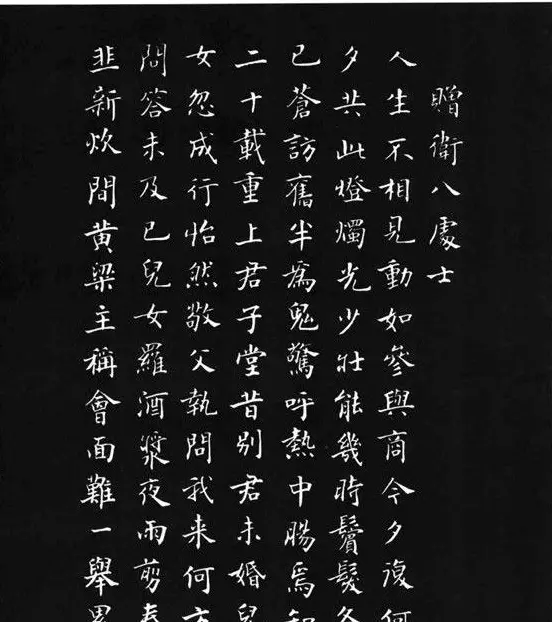 贈衛八處士
人生不相見動如參與商今夕復何
夕共此燈燭光少壯能幾時鬢髮各
已蒼訪舊半爲鬼驚呼熱中腸焉知
二十載重上君子堂昔別君未婚兒
女忽成行怡然敬父執問我来何方
問答未及已兒女羅酒漿夜雨剪春
韭新炊間黄粱主稱會面難一舉累